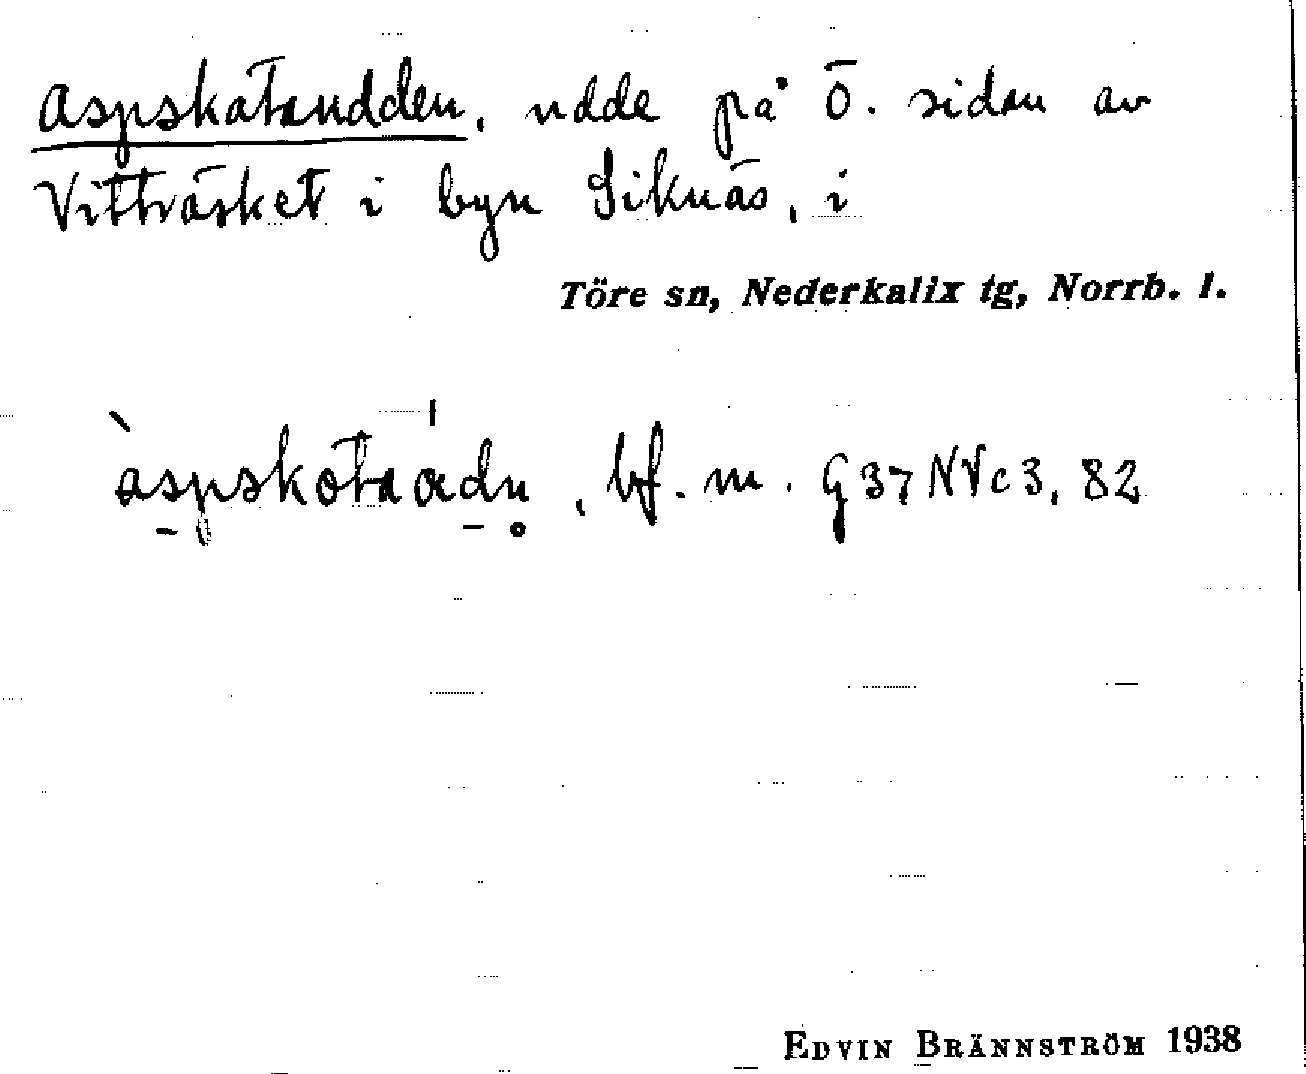 Aspskatsudden, udde på Ö. sidan av
Vitträsket i byn Siknäs, i
Töre sn, Nederkalix tg, Norrb. l.
bf. m. G37NVc3, 82
EDVIN BRÄNNSTRÖM 1938